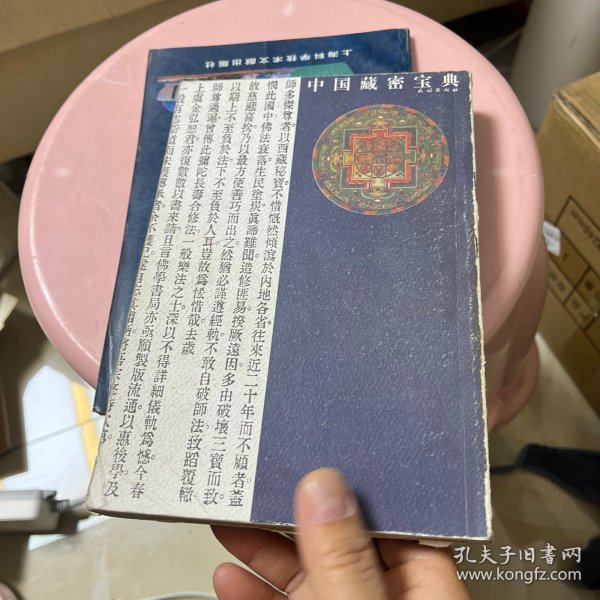 上海科学技术文献出版社
中国藏密宝典
師多傑尊者以西藏秘寶不惜慨然傾瀉於內地各省往來近二十年而不顧者蓋
憫此國中佛法衰落生民塗炭眞諦難聞造修匪易揆厥遠因多由破壞三寶而致
故慈悲喜捨乃以最方便善巧而出之然猶必謹遵經軌不敢自破師法致蹈覆轍
以期上不至負於法下不至負於人耳豈故爲慳惜哉去歲
師尊過滬曾傳此彌陀長壽合修法一般樂法之士深以不得詳細儀軌爲憾今春
上虞金弘恕君亦復數數以書來請且言佛學書局亦亟願製版流通以惠後學及
孔夫子旧书网
www.kongfz.com